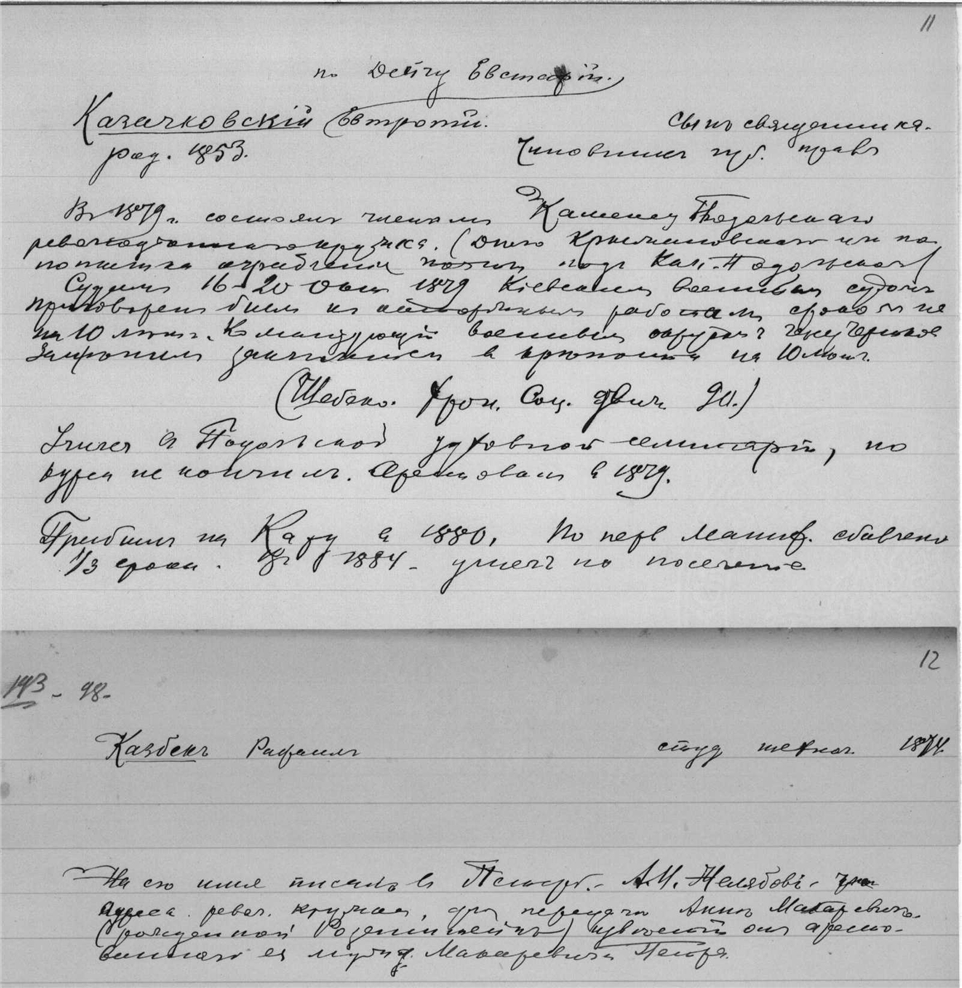 11
по Дейчу Евстафій.
Казачковскій (Евтропій.
сынъ священника.
род. 1853.
Чиновникъ губ. правъ
Въ 1879 г. состоялъ членомъ Каменец Подольскаго
кружка. (Дѣло Крыжановскаго и по
попытка ограбленія почты подъ Кам.-Подольском)
Судим 16-20 1879 Кіевским Военным судом
приговорен был къ каторжным работам срокомъ
на 10 лѣтъ. Командующій Военным округом
заключеніем в крѣпости на 10 лѣтъ.
(Шебеко. Хрон. Соц. Движ 90.)
Учился в Подольской духовной семинаріи, но
курса не кончилъ. Арестованъ в 1879.
Прибылъ на Кару в 1880. По перв маниф. сбавлено
1/3 срока. Въ 1884 - ушелъ на поселеніе
12
193 - 98-
Казбекъ Рафаилъ студ техн. 1874.
На его имя писалъ въ Петерб. А.И. Желябовъ -
адреса рев. кружка, для передачи Аннѣ Макаревичъ
(рожденной Розенштейнъ) от аресто-
ваннаго ея мужа Макаревича Петра.